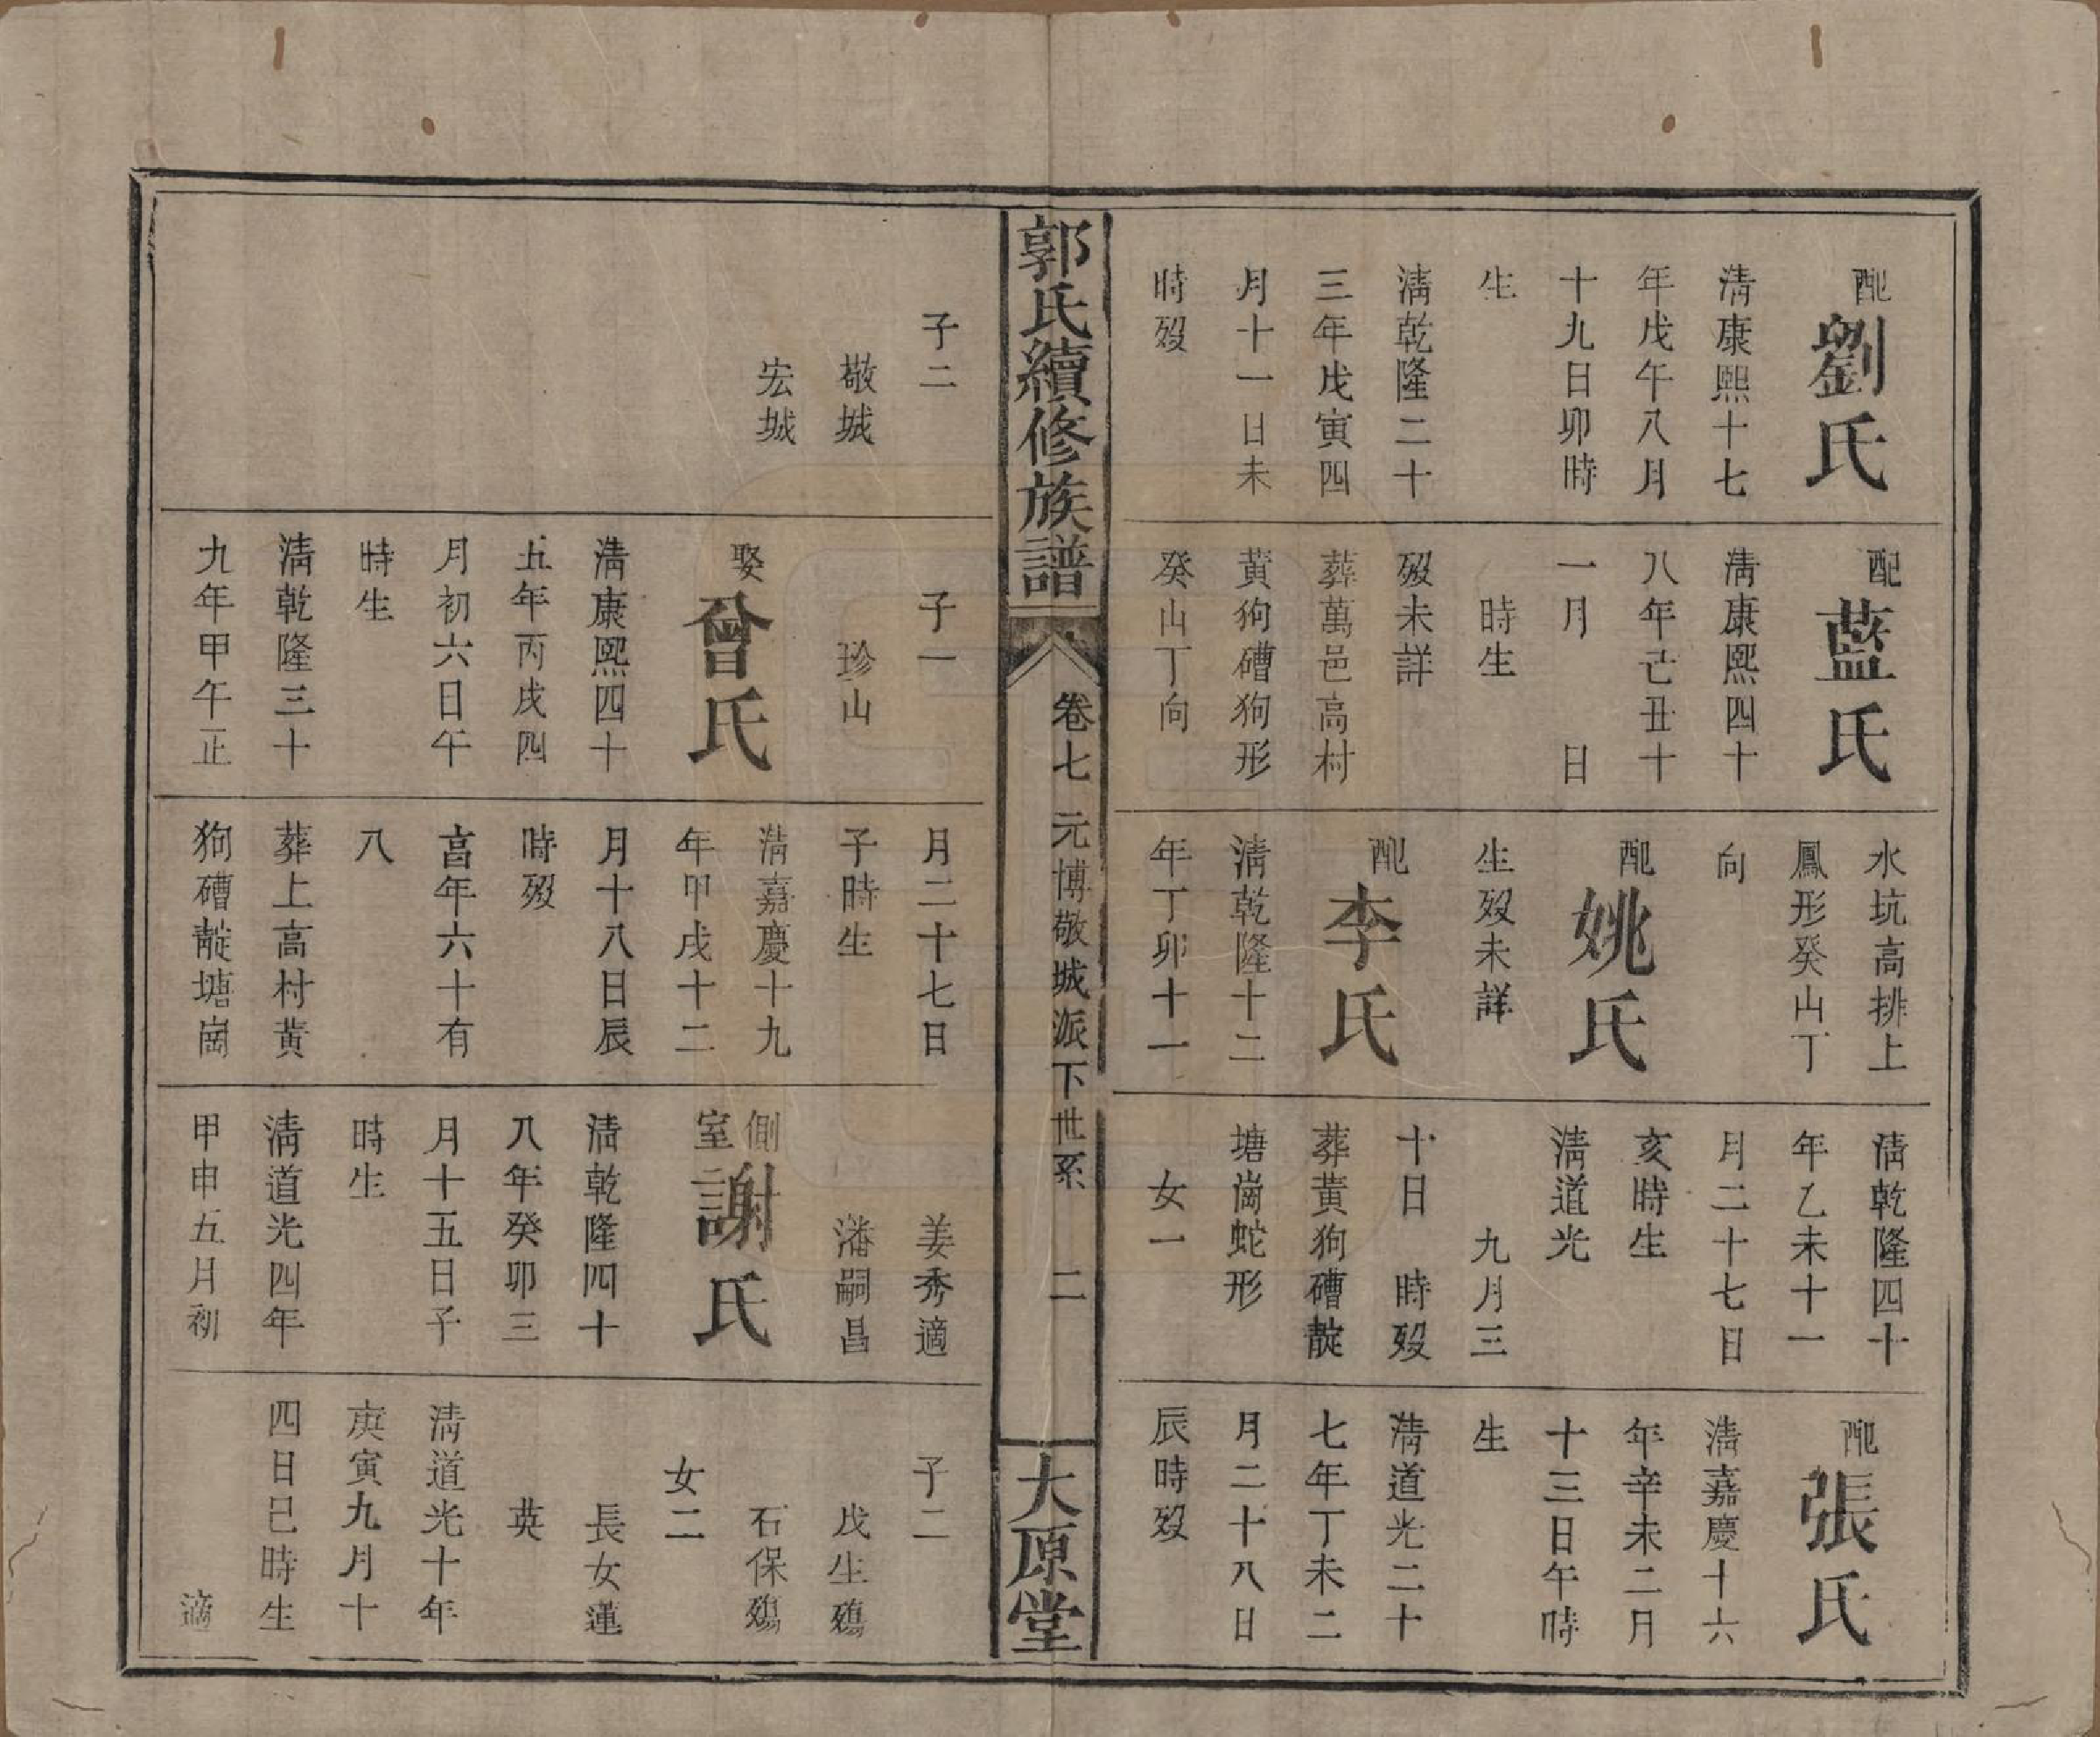 配劉氏
清康熙十七
年戊午八月
十九日卯時
生
清乾隆二十
三年戊寅四
月十一日未
時歿
配藍氏
清康熙四十
八年己丑十
一月　　日
時生
歿未詳
葬萬邑高村
黃狗𥕢狗形
癸山丁向
水坑高排上
鳳形癸山丁
向
配姚氏
生歿未詳
配李氏
清乾隆十二
年丁卯十一
清乾隆四十
年乙未十一
月二十七日
亥時生
清道光
九月三
十日　時歿
葬黃狗𥕢靛
塘崗蛇形
女一
配張氏
清嘉慶十六
年辛未二月
十三日午時
生
清道光二十
七年丁未二
月二十八日
辰時歿
郭氏續修族譜
卷七　元博敬城派下世系　二
大原堂
子二
敬城
宏城
子一
珍山
娶曾氏
清康熙四十
五年丙戌四
月初六日午
時生
清乾隆三十
九年甲午正
月二十七日
子時生
清嘉慶十九
年甲戌十二
月十八日辰
時歿
享年六十有
八
葬上高村黃
狗𥕢靛塘崗
姜秀適
潘嗣昌
側室謝氏
清乾隆四十
八年癸卯三
月十五日子
時生
清道光四年
甲申五月初
子二
戊生殤
石保殤
女二
長女蓮
英
清道光十年
庚寅九月十
四日巳時生
適